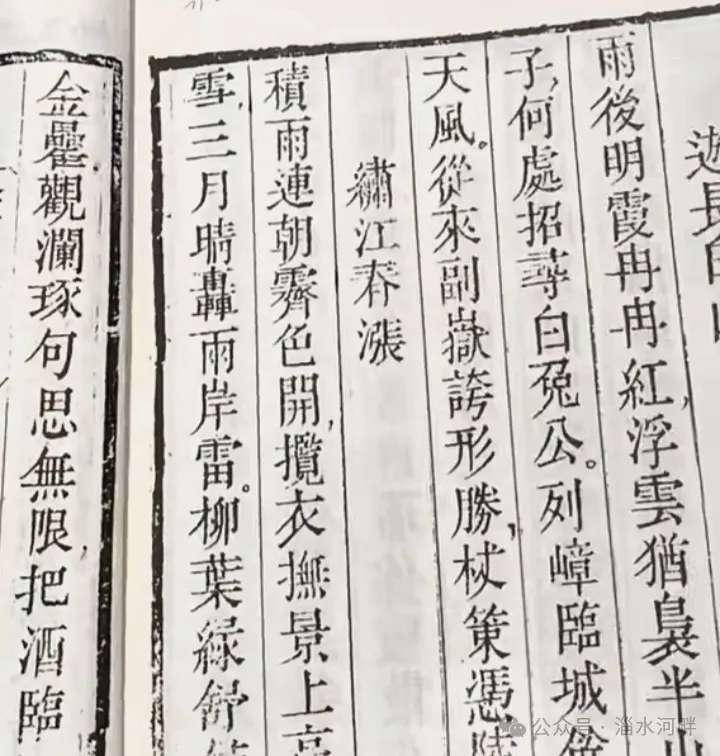 遊長白山
雨後明霞冉冉紅，浮雲猶裊半
子，何處招尋白兔公。列嶂臨城
天風。從來副嶽誇形勝，杖策憑
繡江春漲
積雨連朝霽色開，攬衣撫景上高
雪，三月晴轟兩岸雷。柳葉綠舒
金罍觀瀾琢句思無限，把酒臨
公众号·淄水河畔